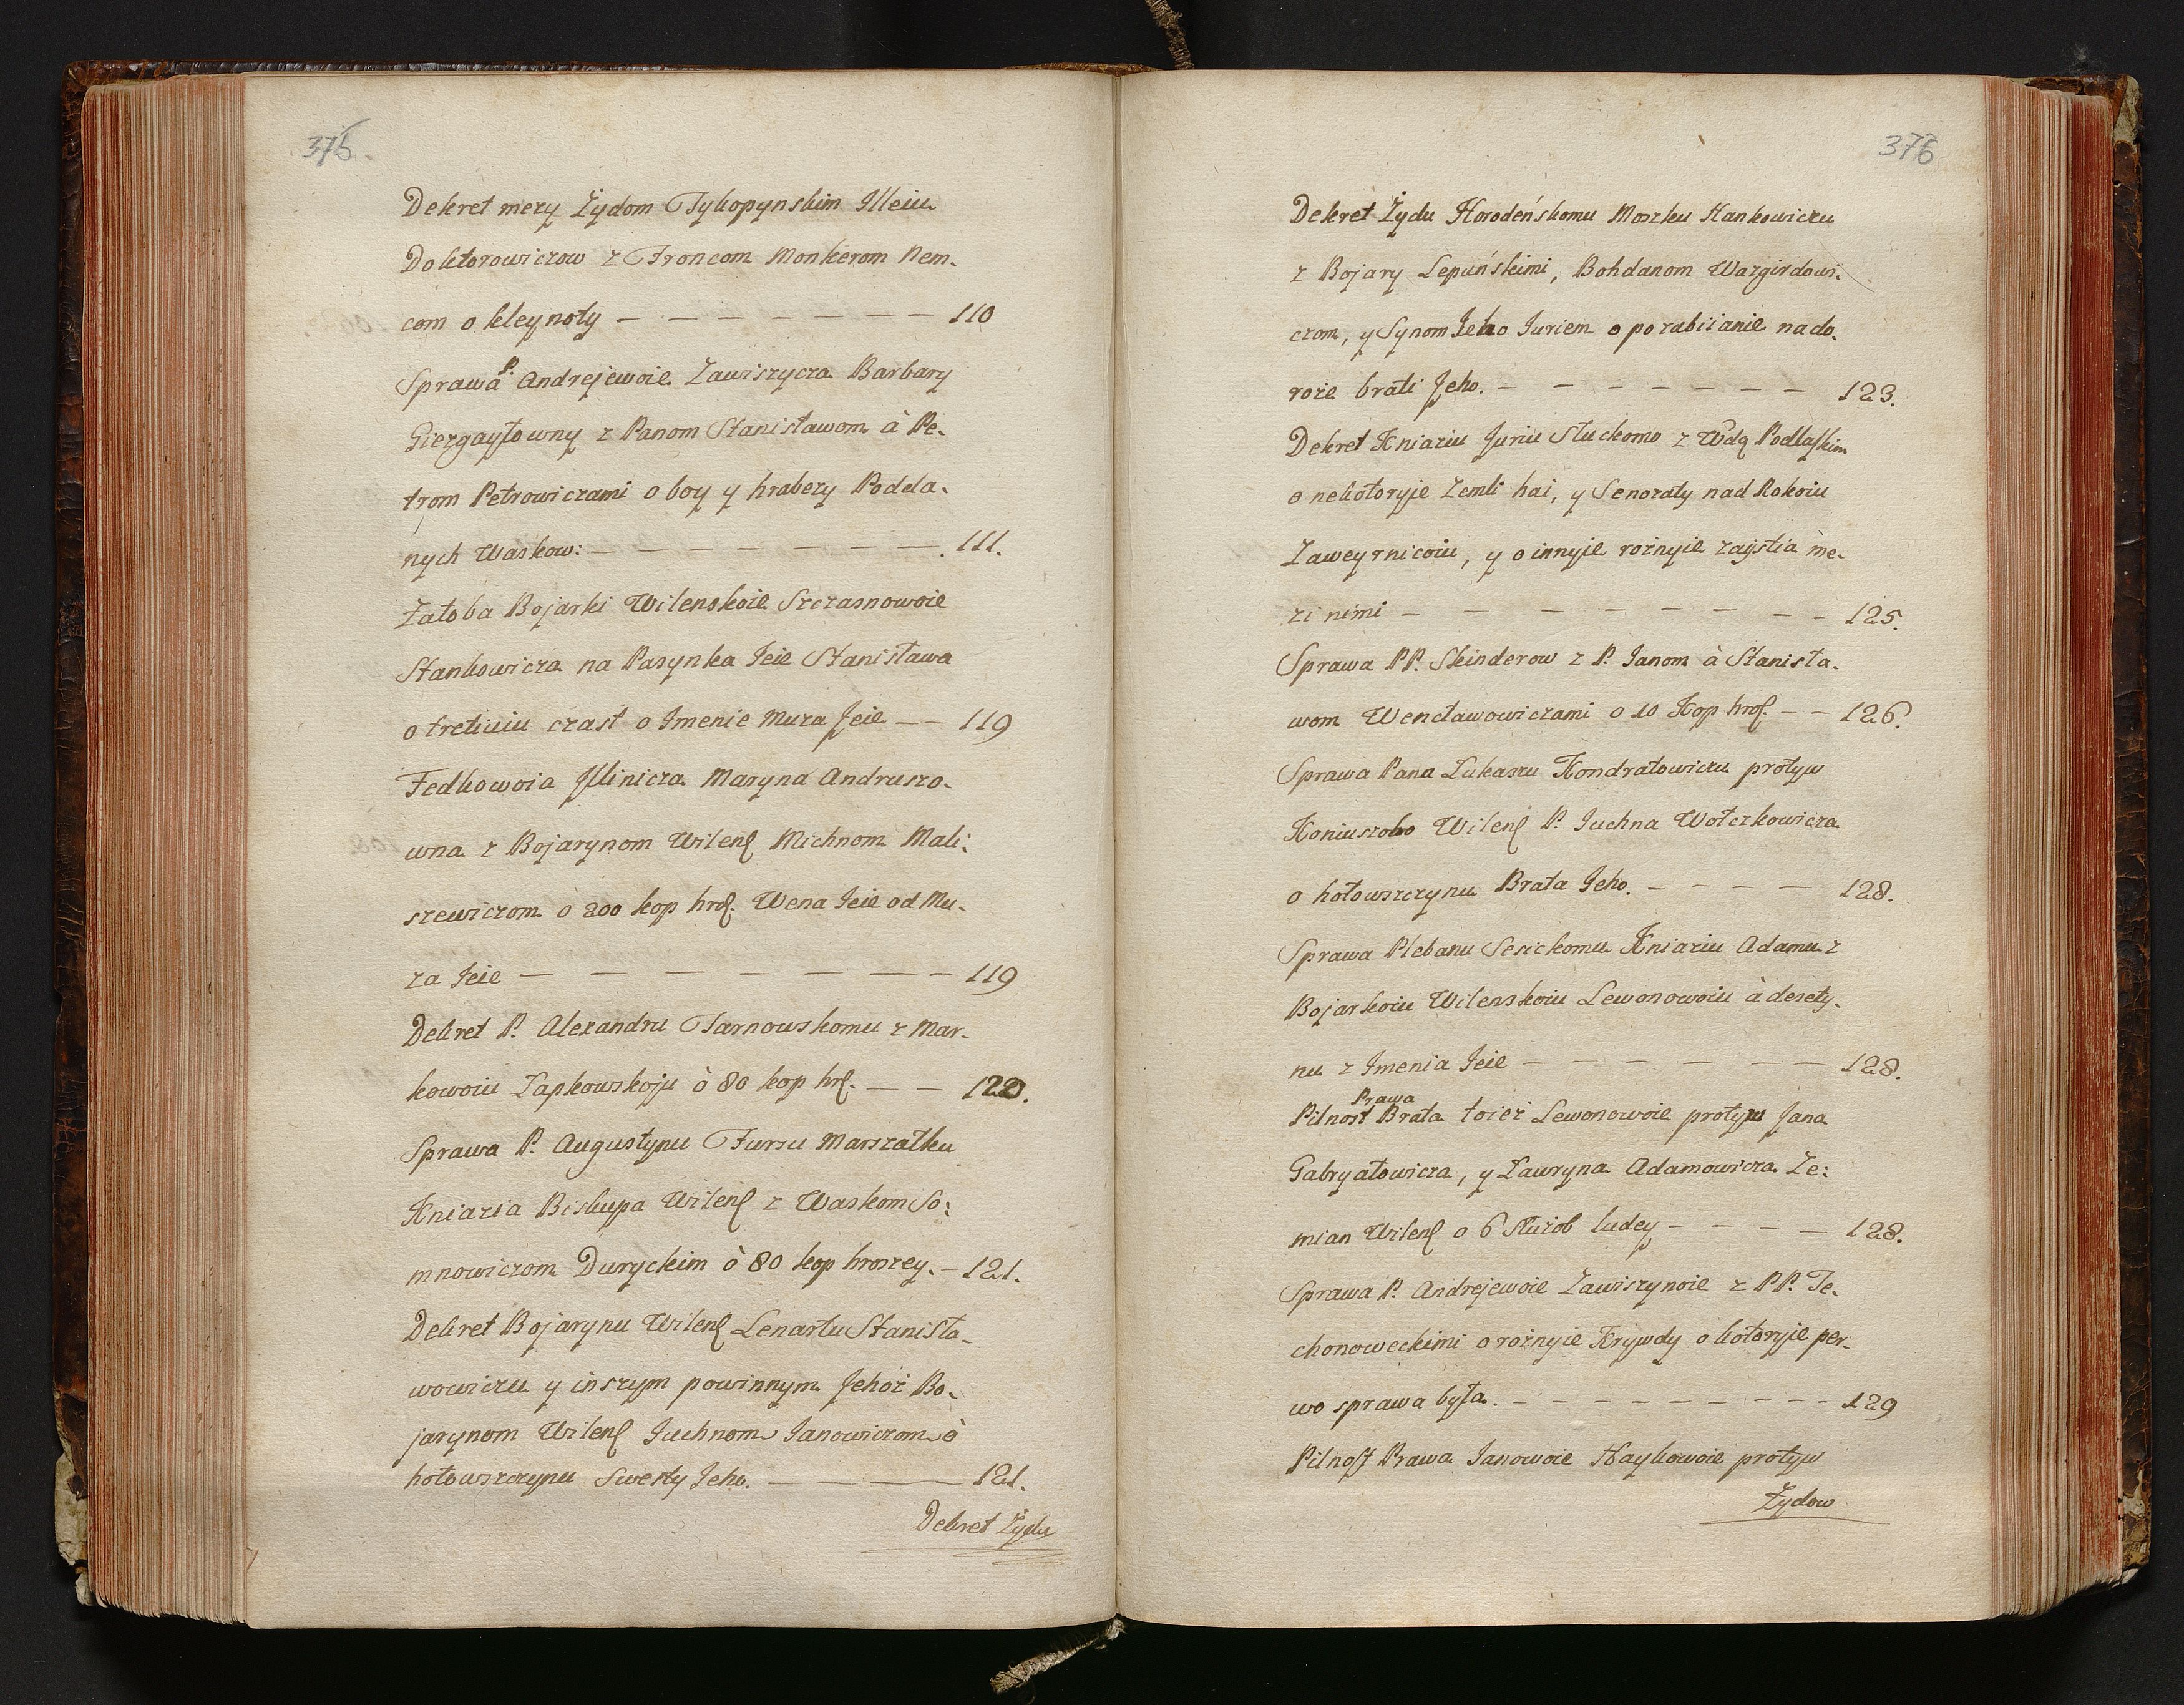 375.
Dekret mezy Żydom Tykopynskim Illeiu
Doktorowiczow z Froncom Monkerom Nem-
com o kleynoty — — — — — — — 110
Sprawa P. Andrejewoie Zawiszycza Barbary
Giezgayłowny z Panom Stanisławom à Pe-
trom Petrowiczami o boy y hrabezy Podda-
nych Waskow: — — — — — — — 111.
Żałoba Bojarki Wilenskoie Szczasnowoie
Stankowicza na Pasynka Ieie Stanisława
o tretiuiu czast o Imenie Muza Jeie — — 119
Fedkowoia Illinicza Maryna Andruszo-
wna z Bojarynom Wilenſ Michnom Mali:
szewiczom o 200 kop hroſ. Wena Ieie od Mu-
za Ieie — — — — — — — 119
Dekret P. Alexandru Tarnowskomu z Mar-
kowoiu Łapkowskoju ò 80 kop hrſ. — — 120.
Sprawa P. Augustynu Fursu Marszałku
Kniazia Biskupa Wilenſ z Waskom So:
mnowiczom Duryckim ò 80 kop hroszey. — 121.
Dekret Bojarynu Wilenſ Lenartu Stanisła-
wowiczu y inszym powinnym Jehoż Bo-
jarynom Wilenſ Juchnom Janowiczom ò
hołowszczynu Swesty Jeho. — — — 121.
Dekret Żydu
376
Dekret Żydu Horodeńskomu Moszku Hankowiczu
z Bojary Lepuńskimi, Bohdanom Wazgirdowi-
czom, y Synom Jeho Iuriem o porabiianie na do-
roże brati Jeho. — — — — — — — 123.
Dekret Kniaziu Juriu Słuckomo z Wdą Podlaſkim
o nekotoryje Zemli hai, y Senozaty nad Rokoiu
Zaweyrnicoiu, y o innyie rożnyie zaystia me-
zi nimi — — — — — — — — 125.
Sprawa PP. Skinderow z P. Janom à Stanisła-
wom Wencławowiczami o 10 Kop hroſ. — — 126.
Sprawa Pana Łukaszu Kondratowiczu protyw
Koniuszoho Wilenſ P. Juchna Wołczkowicza
o hołowszczynu Brata Jeho. — — — — 128.
Sprawa Plebanu Sesickomu Kniaziu Adamu z
Bojarkoiu Wilenskoiu Lewonowoiu à desety-
nu z Imenia Ieie — — — — — — 128.
Pilnost Prawa Brata toież Lewonowoie protyw Jana
Gabryałowicza, y Ławryna Adamowicza Ze:
mian Wilenſ o 6 Służob ludey — — — — 128.
Sprawa P. Andrejewoie Zawiszynoie z PP. Te-
chonoweckimi o rożnyie Krywdy o kotoryie per-
wo sprawa była. — — — — — — — — 129
Pilnoſt Prawa Janowoie Haykowoie protyw
Żydow